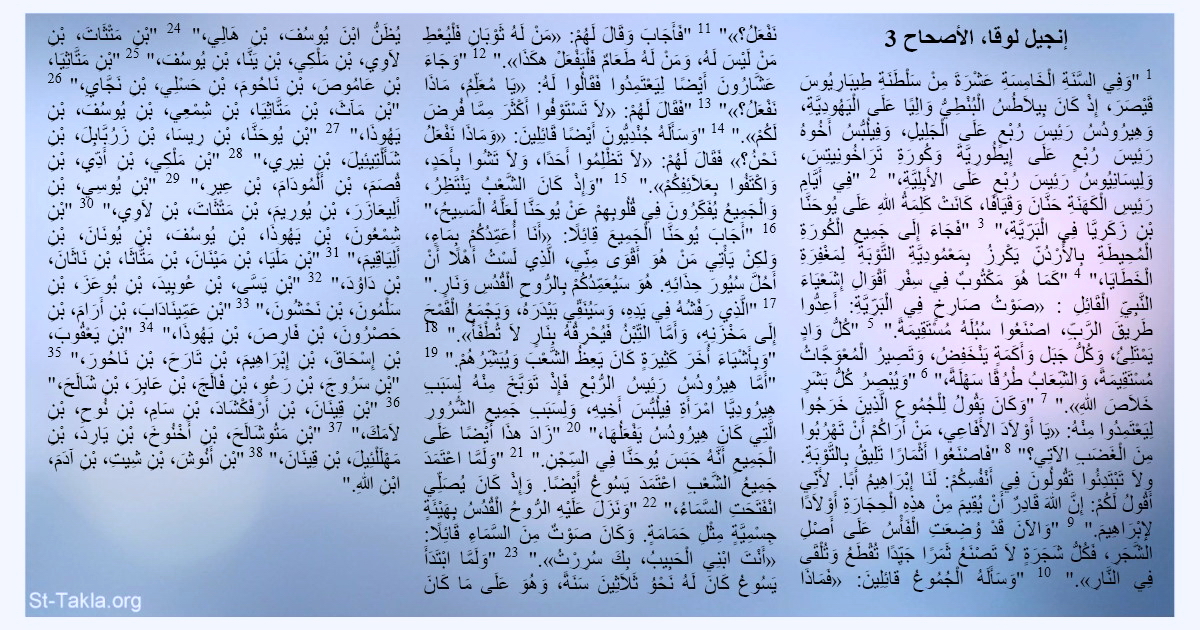 إنجيل لوقا، الأصحاح 3
1 "وَفِي السَّنَةِ الْخَامِسَةِ عَشْرَةَ مِنْ سَلْطَنَةِ طِيبَارِيُوسَ
قَيْصَرَ، إِذْ كَانَ بِيلاَطُسُ الْبُنْطِيُّ وَالِيًا عَلَى الْيَهُودِيَّةِ،
وَهِيرُودُسُ رَئِيسَ رُبْعٍ عَلَى الْجَلِيلِ، وَفِيلُبُّسُ أَخُوهُ
رَئِيسَ رُبْعٍ عَلَى إِيطُورِيَّةَ وَكُورَةِ تَرَاخُونِيتِسَ،
وَلِيسَانِيُوسُ رَئِيسَ رُبْعٍ عَلَى الأَبِلِيَّةِ،" 2 "فِي أَيَّامِ
رَئِيسِ الْكَهَنَةِ حَنَّانَ وَقَيَافَا، كَانَتْ كَلِمَةُ اللهِ عَلَى يُوحَنَّا
بْنِ زَكَرِيَّا فِي الْبَرِّيَّةِ،" 3 "فَجَاءَ إِلَى جَمِيعِ الْكُورَةِ
الْمُحِيطَةِ بِالأُرْدُنِّ يَكْرِزُ بِمَعْمُودِيَّةِ التَّوْبَةِ لِمَغْفِرَةِ
الْخَطَايَا،" 4 "كَمَا هُوَ مَكْتُوبٌ فِي سِفْرِ أَقْوَالِ إِشَعْيَاءَ
النَّبِيِّ الْقَائِلِ : «صَوْتُ صَارِخٍ فِي الْبَرِّيَّةِ: أَعِدُّوا
طَرِيقَ الرَّبِّ، اصْنَعُوا سُبُلَهُ مُسْتَقِيمَةً." 5 "كُلُّ وَادٍ
يَمْتَلِئُ، وَكُلُّ جَبَل وَأَكَمَةٍ يَنْخَفِضُ، وَتَصِيرُ الْمُعْوَجَّاتُ
مُسْتَقِيمَةً، وَالشِّعَابُ طُرُقًا سَهْلَةً،" 6 "وَيُبْصِرُ كُلُّ بَشَرٍ
خَلاَصَ اللهِ»." 7 "وَكَانَ يَقُولُ لِلْجُمُوعِ الَّذِينَ خَرَجُوا
لِيَعْتَمِدُوا مِنْهُ: «يَا أَوْلاَدَ الأَفَاعِي، مَنْ أَرَاكُمْ أَنْ تَهْرُبُوا
مِنَ الْغَضَبِ الآتِي؟" 8 "فَاصْنَعُوا أَثْمَارًا تَلِيقُ بِالتَّوْبَةِ.
ولاَ تَبْتَدِئُوا تَقُولُونَ فِي أَنْفُسِكُمْ: لَنَا إِبْرَاهِيمُ أَبًا. لأَنِّي
أَقُولُ لَكُمْ: إِنَّ اللهَ قَادِرٌ أَنْ يُقِيمَ مِنْ هذِهِ الْحِجَارَةِ أَوْلاَدًا
لإِبْرَاهِيمَ." 9 "وَالآنَ قَدْ وُضِعَتِ الْفَأْسُ عَلَى أَصْلِ
الشَّجَرِ، فَكُلُّ شَجَرَةٍ لاَ تَصْنَعُ ثَمَرًا جَيِّدًا تُقْطَعُ وَتُلْقَى
فِي النَّارِ»." 10 "وَسَأَلَهُ الْجُمُوعُ قَائِلِينَ: «فَمَاذَا
نَفْعَلُ؟»" 11 "فَأَجَابَ وَقَالَ لَهُمْ: «مَنْ لَهُ ثَوْبَانِ فَلْيُعْطِ
مَنْ لَيْسَ لَهُ، وَمَنْ لَهُ طَعَامٌ فَلْيَفْعَلْ هكَذَا»." 12 "وَجَاءَ
عَشَّارُونَ أَيْضًا لِيَعْتَمِدُوا فَقَالُوا لَهُ: «يَا مُعَلِّمُ، مَاذَا
نَفْعَلُ؟»" 13 "فَقَالَ لَهُمْ: «لاَ تَسْتَوْفُوا أَكْثَرَ مِمَّا فُرِضَ
لَكُمْ»." 14 "وَسَأَلَهُ جُنْدِيُّونَ أَيْضًا قَائِلِينَ: «وَمَاذَا نَفْعَلُ
نَحْنُ؟» فَقَالَ لَهُمْ: «لاَ تَظْلِمُوا أَحَدًا، وَلاَ تَشُوا بِأَحَدٍ،
وَاكْتَفُوا بِعَلاَئِفِكُمْ»." 15 "وَإِذْ كَانَ الشَّعْبُ يَنْتَظِرُ،
وَالْجَمِيعُ يُفَكِّرُونَ فِي قُلُوبِهِمْ عَنْ يُوحَنَّا لَعَلَّهُ الْمَسِيحُ،"
16 "أَجَابَ يُوحَنَّا الْجَمِيعَ قَائِلاً: «أَنَا أُعَمِّدُكُمْ بِمَاءٍ،
وَلكِنْ يَأْتِي مَنْ هُوَ أَقْوَى مِنِّي، الَّذِي لَسْتُ أَهْلاً أَنْ
أَحُلَّ سُيُورَ حِذَائِهِ. هُوَ سَيُعَمِّدُكُمْ بِالرُّوحِ الْقُدُسِ وَنَارٍ."
17 "الَّذِي رَفْشُهُ فِي يَدِهِ، وَسَيُنَقِّي بَيْدَرَهُ، وَيَجْمَعُ الْقَمْحَ
إِلَى مَخْزَنِهِ، وَأَمَّا التِّبْنُ فَيُحْرِقُهُ بِنَارٍ لاَ تُطْفَأُ»." 18
"وَبِأَشْيَاءَ أُخَرَ كَثِيرَةٍ كَانَ يَعِظُ الشَّعْبَ وَيُبَشِّرُهُمْ." 19
"أَمَّا هِيرُودُسُ رَئِيسُ الرُّبْعِ فَإِذْ تَوَبَّخَ مِنْهُ لِسَبَبِ
هِيرُودِيَّا امْرَأَةِ فِيلُبُّسَ أَخِيهِ، وَلِسَبَبِ جَمِيعِ الشُّرُورِ
الَّتِي كَانَ هِيرُودُسُ يَفْعَلُهَا،" 20 "زَادَ هذَا أَيْضًا عَلَى
الْجَمِيعِ أَنَّهُ حَبَسَ يُوحَنَّا فِي السِّجْنِ." 21 "وَلَمَّا اعْتَمَدَ
جَمِيعُ الشَّعْبِ اعْتَمَدَ يَسُوعُ أَيْضًا. وَإِذْ كَانَ يُصَلِّي
انْفَتَحَتِ السَّمَاءُ،" 22 "وَنَزَلَ عَلَيْهِ الرُّوحُ الْقُدُسُ بِهَيْئَةٍ
جِسْمِيَّةٍ مِثْلِ حَمَامَةٍ. وَكَانَ صَوْتٌ مِنَ السَّمَاءِ قَائِلاً:
«أَنْتَ ابْنِي الْحَبِيبُ، بِكَ سُرِرْتُ»." 23 "وَلَمَّا ابْتَدَأَ
يَسُوعُ كَانَ لَهُ نَحْوُ ثَلاَثِينَ سَنَةً، وَهُوَ عَلَى مَا كَانَ
يُظَنُّ ابْنَ يُوسُفَ، بْنِ هَالِي،" 24 "بْنِ مَتْثَاتَ، بْنِ
لاَوِي، بْنِ مَلْكِي، بْنِ يَنَّا، بْنِ يُوسُفَ،" 25 "بْنِ مَتَّاثِيَا،
بْنِ عَامُوصَ، بْنِ نَاحُومَ، بْنِ حَسْلِي، بْنِ نَجَّايِ،" 26
"بْنِ مَآثَ، بْنِ مَتَّاثِيَا، بْنِ شِمْعِي، بْنِ يُوسُفَ، بْنِ
يَهُوذَا،" 27 "بْنِ يُوحَنَّا، بْنِ رِيسَا، بْنِ زَرُبَّابِلَ، بْنِ
شَأَلْتِيئِيلَ، بْنِ نِيرِي،" 28 "بْنِ مَلْكِي، بْنِ أَدِّي، بْنِ
قُصَمَ، بْنِ أَلْمُودَامَ، بْنِ عِيرِ،" 29 "بْنِ يُوسِي، بْنِ
أَلِيعَازَرَ، بْنِ يُورِيمَ، بْنِ مَتْثَاتَ، بْنِ لاَوِي،" 30 "بْنِ
شِمْعُونَ، بْنِ يَهُوذَا، بْنِ يُوسُفَ، بْنِ يُونَانَ، بْنِ
أَلِيَاقِيمَ،" 31 "بْنِ مَلَيَا، بْنِ مَيْنَانَ، بْنِ مَتَّاثَا، بْنِ نَاثَانَ،
بْنِ دَاوُدَ،" 32 "بْنِ يَسَّى، بْنِ عُوبِيدَ، بْنِ بُوعَزَ، بْنِ
سَلْمُونَ، بْنِ نَحْشُونَ،" 33 "بْنِ عَمِّينَادَابَ، بْنِ أَرَامَ، بْنِ
حَصْرُونَ، بْنِ فَارِصَ، بْنِ يَهُوذَا،" 34 "بْنِ يَعْقُوبَ،
بْنِ إِسْحَاقَ، بْنِ إِبْرَاهِيمَ، بْنِ تَارَحَ، بْنِ نَاحُورَ،" 35
"بْنِ سَرُوجَ، بْنِ رَعُو، بْنِ فَالَجَ، بْنِ عَابِرَ، بْنِ شَالَحَ،"
36 "بْنِ قِينَانَ، بْنِ أَرْفَكْشَادَ، بْنِ سَامِ، بْنِ نُوحِ، بْنِ
لاَمَكَ،" 37 "بْنِ مَتُوشَالَحَ، بْنِ أَخْنُوخَ، بْنِ يَارِدَ، بْنِ
مَهْلَلْئِيلَ، بْنِ قِينَانَ،" 38 "بْنِ أَنُوشَ، بْنِ شِيتِ، بْنِ آدَمَ،
ابْنِ اللهِ."
St-Takla.org